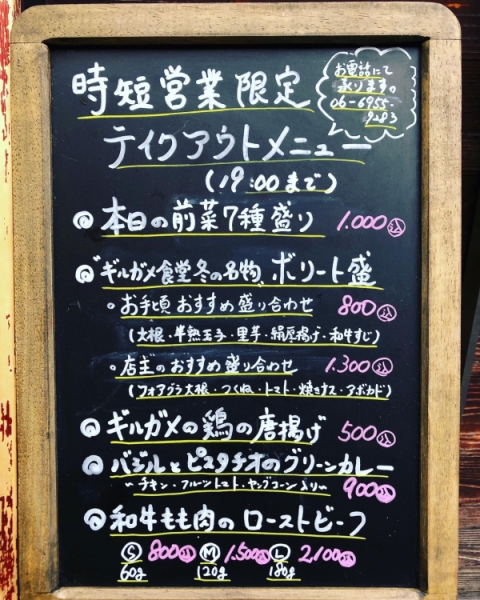 時短営業限定
お電話にて
承ります。
06-6955-
9283
テイクアウトメニュー
(19:00まで)
本日の前菜7種盛り 1.000込
ギルガメ食堂冬の名物、ボリート盛
お手頃おすすめ盛り合わせ 800込
(大根・半熟玉子・里芋・絹厚揚げ・和牛すじ)
店主のおすすめ盛り合わせ 1.300込
(フォアグラ大根・つくね・トマト・焼きナス・アボカド)
ギルガメの鶏の唐揚げ 500込
バジルとピスタチオのグリーンカレー
~チキン・フルーツトマト・ヤングコーン入り~ 900込
和牛もも肉のローストビーフ
S 800込 M 1.500込 L 2.100込
60g 120g 180g